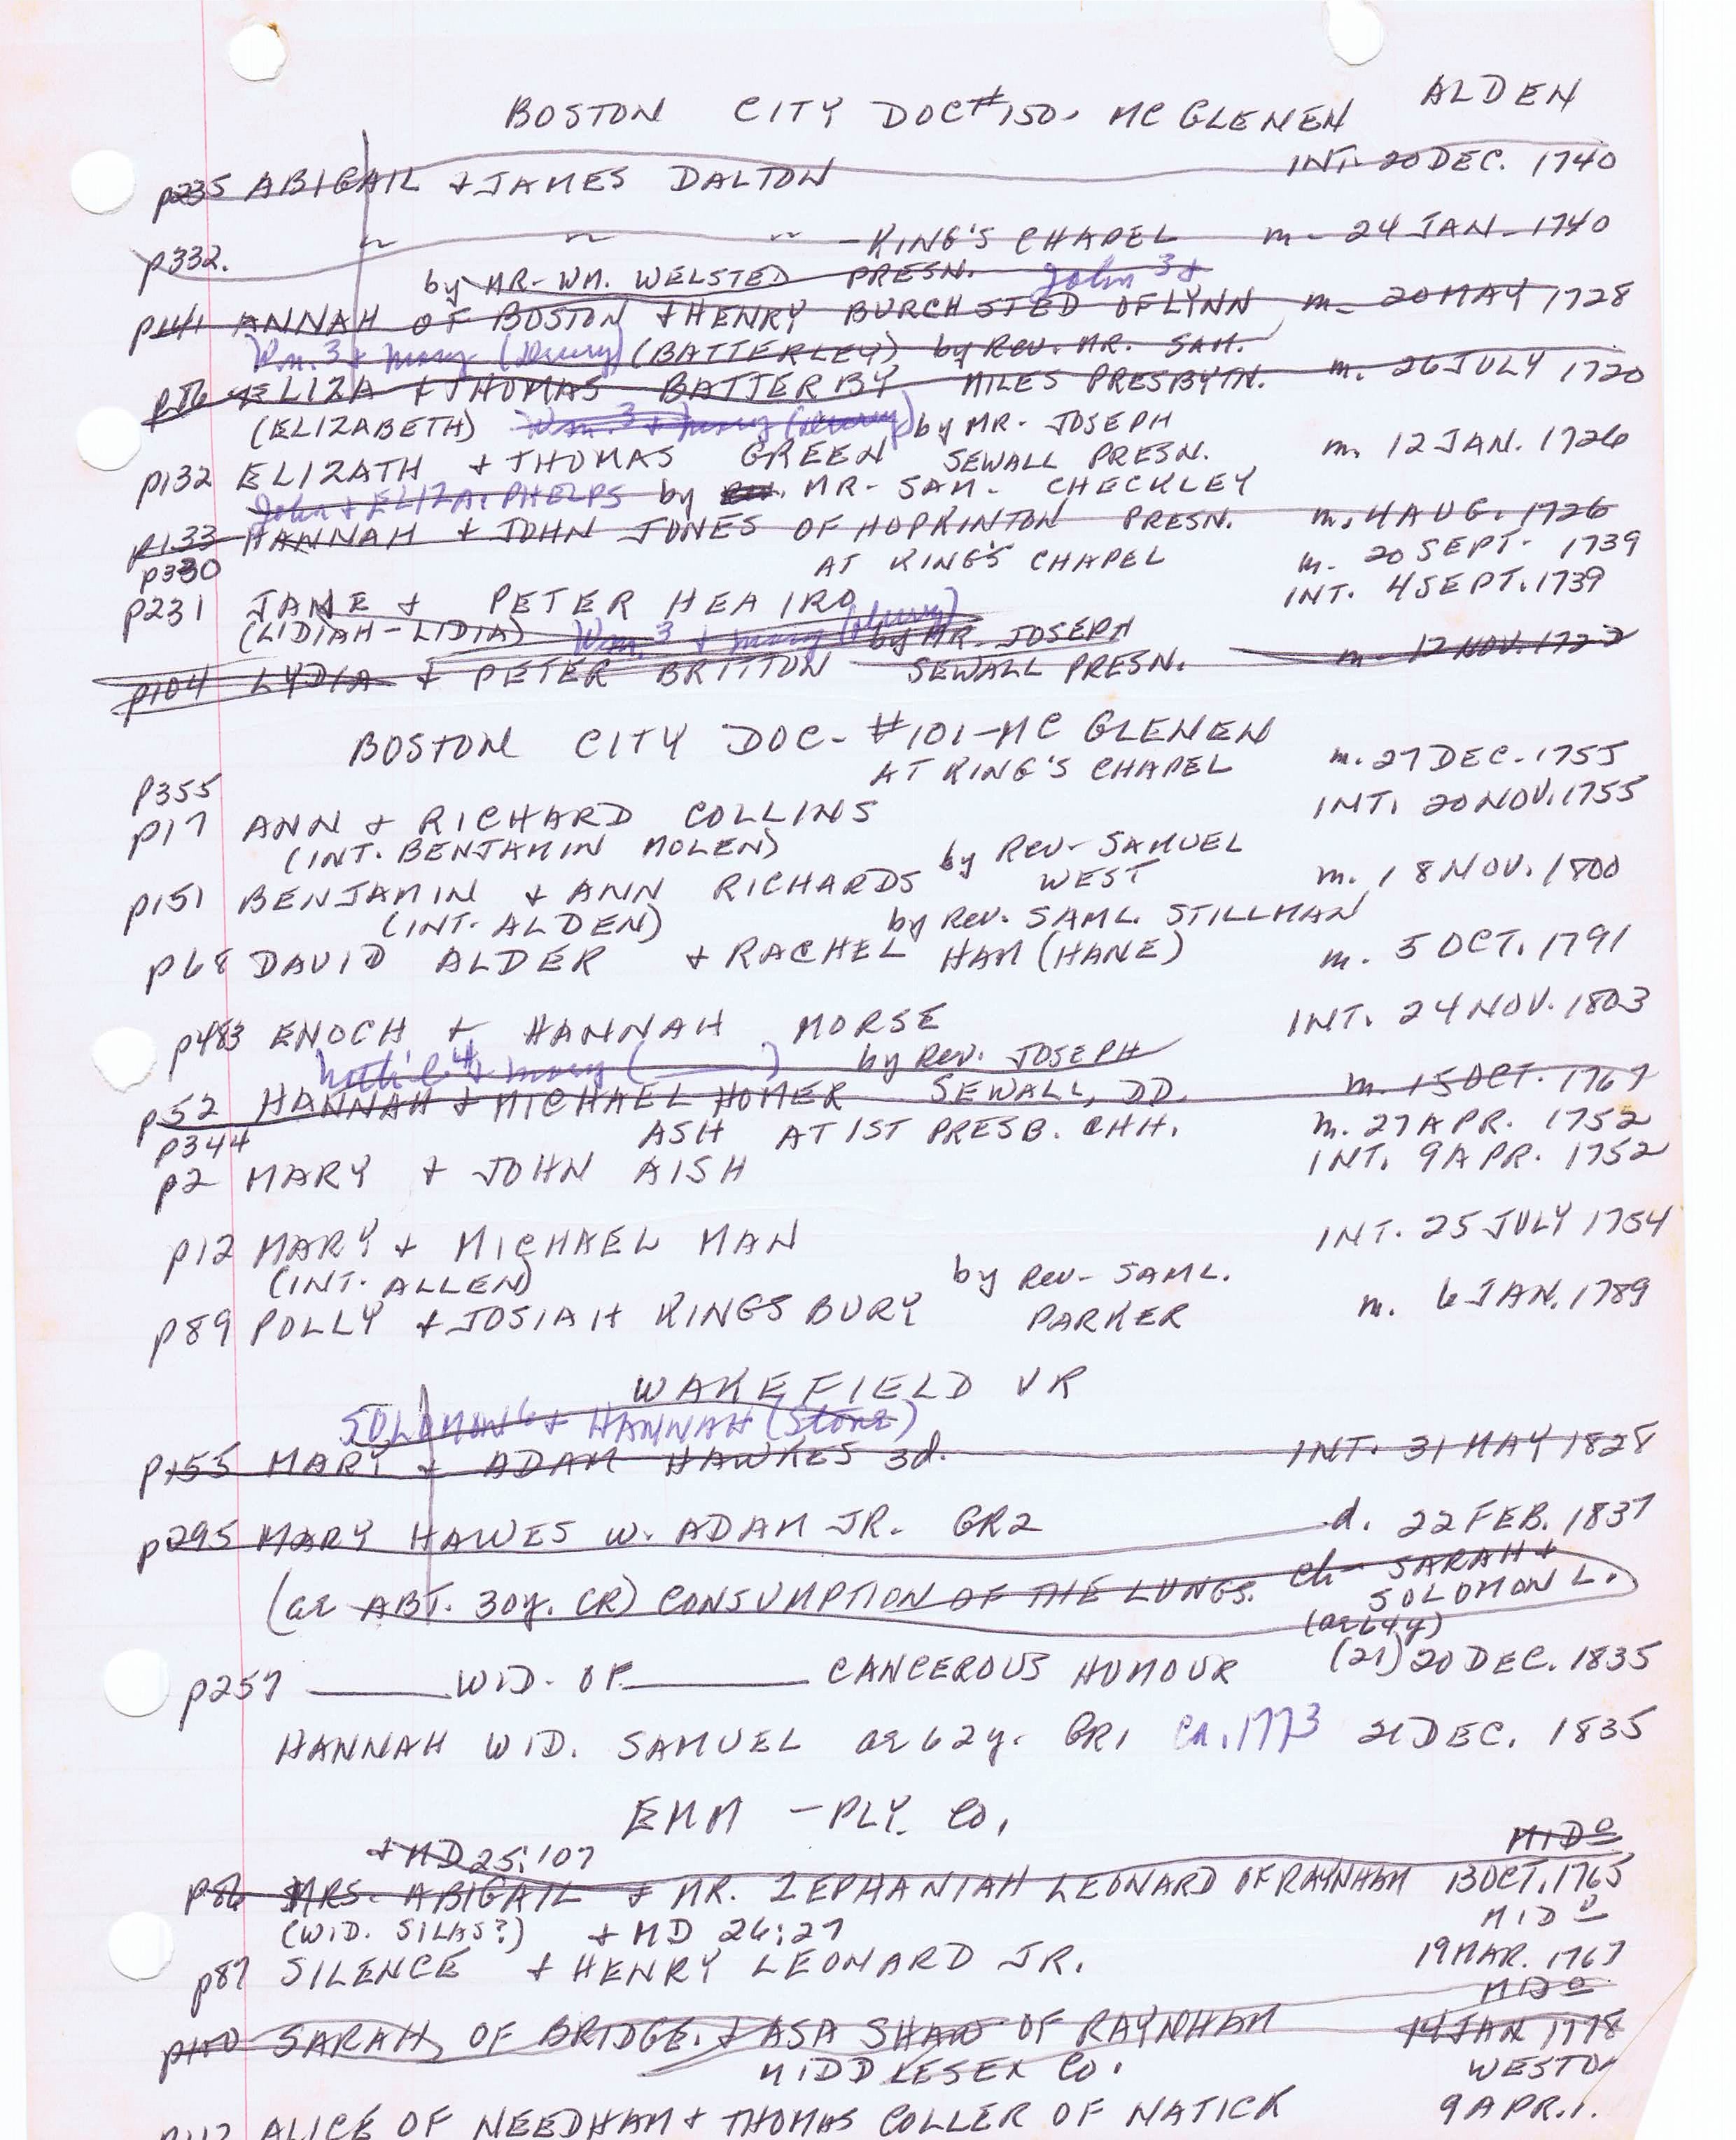 ALDEN
BOSTON CITY DOC #150. MC GLENEN
p235 ABIGAIL & JAMES DALTON INT. 20 DEC. 1740
p332. " " " - KING'S CHAPEL m - 24 JAN - 1740
by MR - WM. WELSTED PRESN. John 3 &
p141 ANNAH OF BOSTON & HENRY BURCHSTED OF LYNN m - 20 MAY 1728
Wm. 3 & Mary (Drury) (BATTERLEY) by Rev. MR. SAM.
p86 ELIZA & THOMAS BATTERBY MILES PRESBYTN. m. 26 JULY 1720
(ELIZABETH) Wm. 3 & Mary (Drury) by MR - JOSEPH
p132 ELIZATH & THOMAS GREEN SEWALL PRESN. m. 12 JAN. 1726
John & ELIZA. PHELPS by Rev. MR - SAM - CHECKLEY
p133 HANNAH & JOHN JONES OF HOPKINTON PRESN. m. 4 AUG. 1726
p330 AT KING'S CHAPEL m. 20 SEPT. 1739
p231 JANE & PETER HEAIRD INT. 4 SEPT. 1739
(LIDIAH - LIDIA) Wm. 3 & Mary (Drury) by MR. JOSEPH
p104 LYDIA & PETER BRITTON SEWALL PRESN. m - 12 NOV. 1722
BOSTON CITY DOC - #101 - MC GLENEN
p355 AT KING'S CHAPEL m. 27 DEC. 1755
p17 ANN & RICHARD COLLINS INT. 20 NOV. 1755
(INT. BENJAMIN MOLEN) by Rev - SAMUEL
p151 BENJAMIN & ANN RICHARDS WEST m. 18 NOV. 1800
(INT. ALDEN) by Rev. SAML. STILLMAN
p68 DAVID ALDER & RACHEL HAM (HANE) m. 5 OCT. 1791
p483 ENOCH & HANNAH MORSE INT. 24 NOV. 1803
Nath'l 4 & Mary ( ) by Rev. JOSEPH
p52 HANNAH & MICHAEL HOMER SEWALL, DD. m. 15 OCT. 1767
p344 ASH AT 1ST PRESB. CHH. m. 27 APR. 1752
p2 MARY & JOHN AISH INT. 9 APR. 1752
p12 MARY & MICHAEL MAN INT. 25 JULY 1754
(INT. ALLEN) by Rev - SAML.
p89 POLLY & JOSIAH KINGSBURY PARKER m. 6 JAN. 1789
WAKEFIELD VR
SOLOMON 6 & HANNAH (Stone)
p155 MARY & ADAM HAWKES 3d. INT. 31 MAY 1828
p295 MARY HAWES W. ADAM JR. GR2 d. 22 FEB. 1837
(ae ABT. 30y. CR) CONSUMPTION OF THE LUNGS. ch - SARAH &
SOLOMON L.
(ae 64y)
p257 WID. OF CANCEROUS HUMOUR (21) 20 DEC. 1835
HANNAH WID. SAMUEL ae 62y. GR1 ca. 1773 21 DEC. 1835
EMM - PLY. Co.
& MD 25:107 MIDo
p86 MRS. ABIGAIL & MR. ZEPHANIAH LEONARD OF RAYNHAM 13 OCT. 1765
(WID. SILAS?) & MD 26:27 MIDo
p87 SILENCE & HENRY LEONARD JR. 19 MAR. 1767
MIDo
p110 SARAH OF BRIDGE. & ASA SHAW OF RAYNHAM 14 JAN 1778
MIDDLESEX Co. WESTO
ALICE OF NEEDHAM & THOMAS COLLER OF NATICK 9 APR.